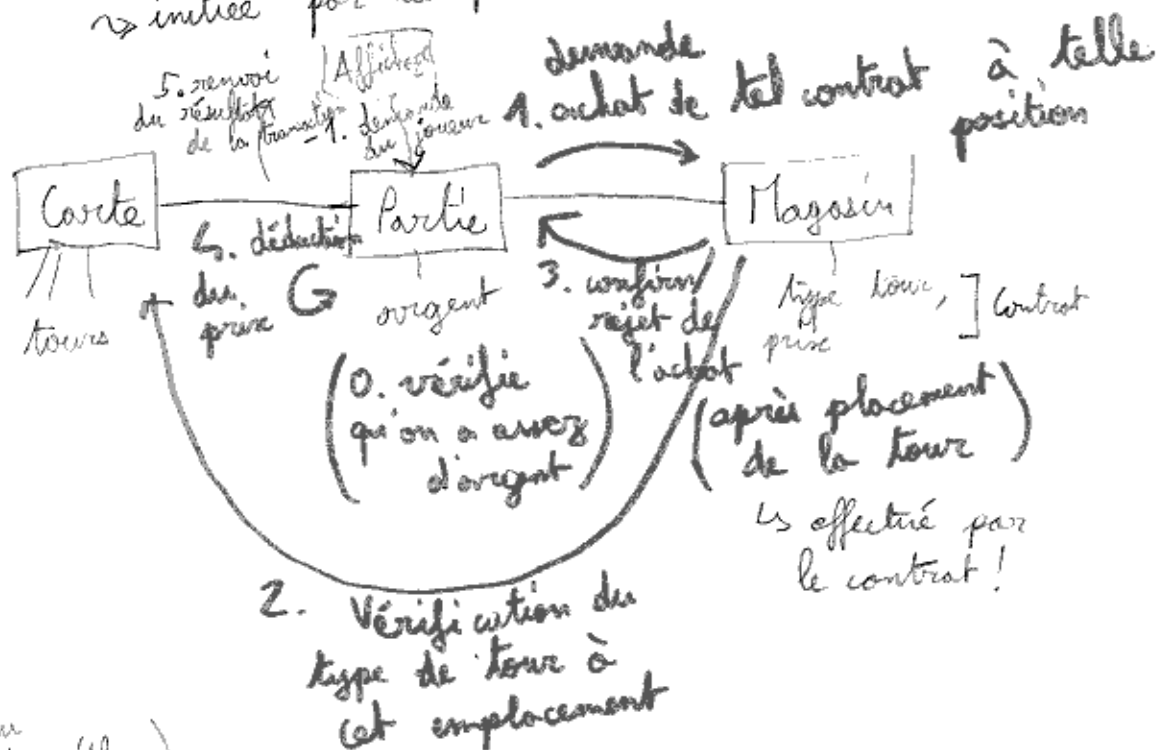 ↝ initiée par
5. renvoi
du résultat
de la transaction
-1. demande
du joueur
demande
1. achat de tel contrat à telle
position
Carte
Partie
Magasin
tours
4. déduction
du
prix
argent
3. confirm/
rejet de
l'achat
type tour,
prix
] Contrat
(0. vérifie
qu'on a assez
d'argent)
(après placement
de la tour)
↳ effectué par
le contrat !
2. Vérification du
type de tour à
cet emplacement